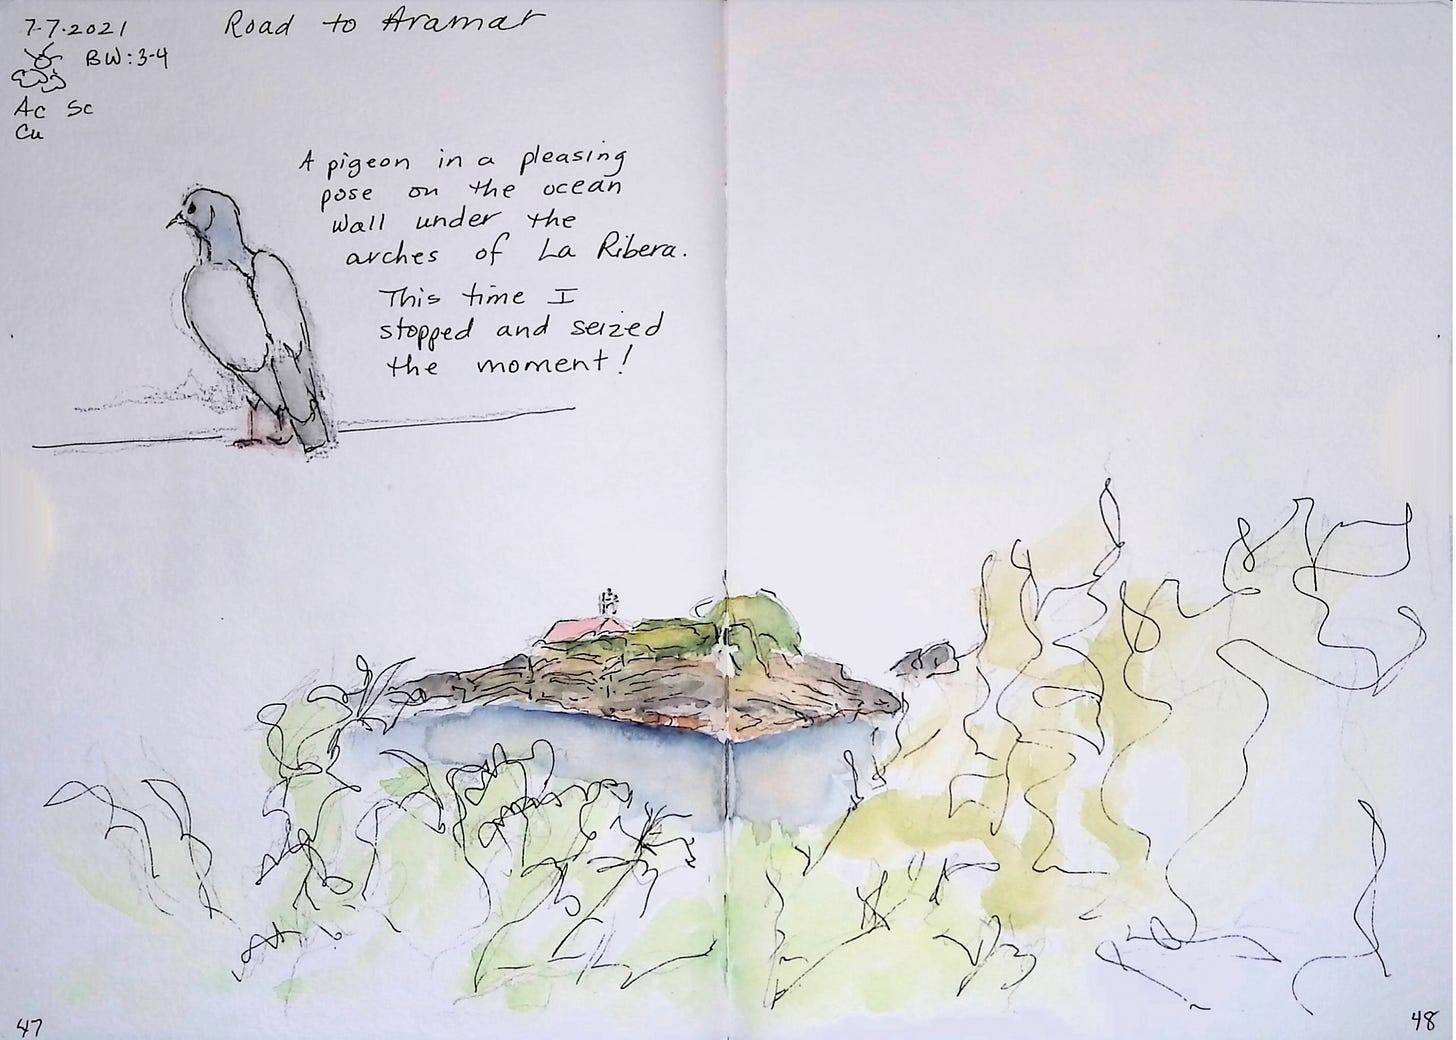 7-7-2021
Road to Aramar
BW:3-4
Ac Sc
Cu
A pigeon in a pleasing
pose on the ocean
wall under the
arches of La Ribera.
This time I
stopped and seized
the moment!
47
48